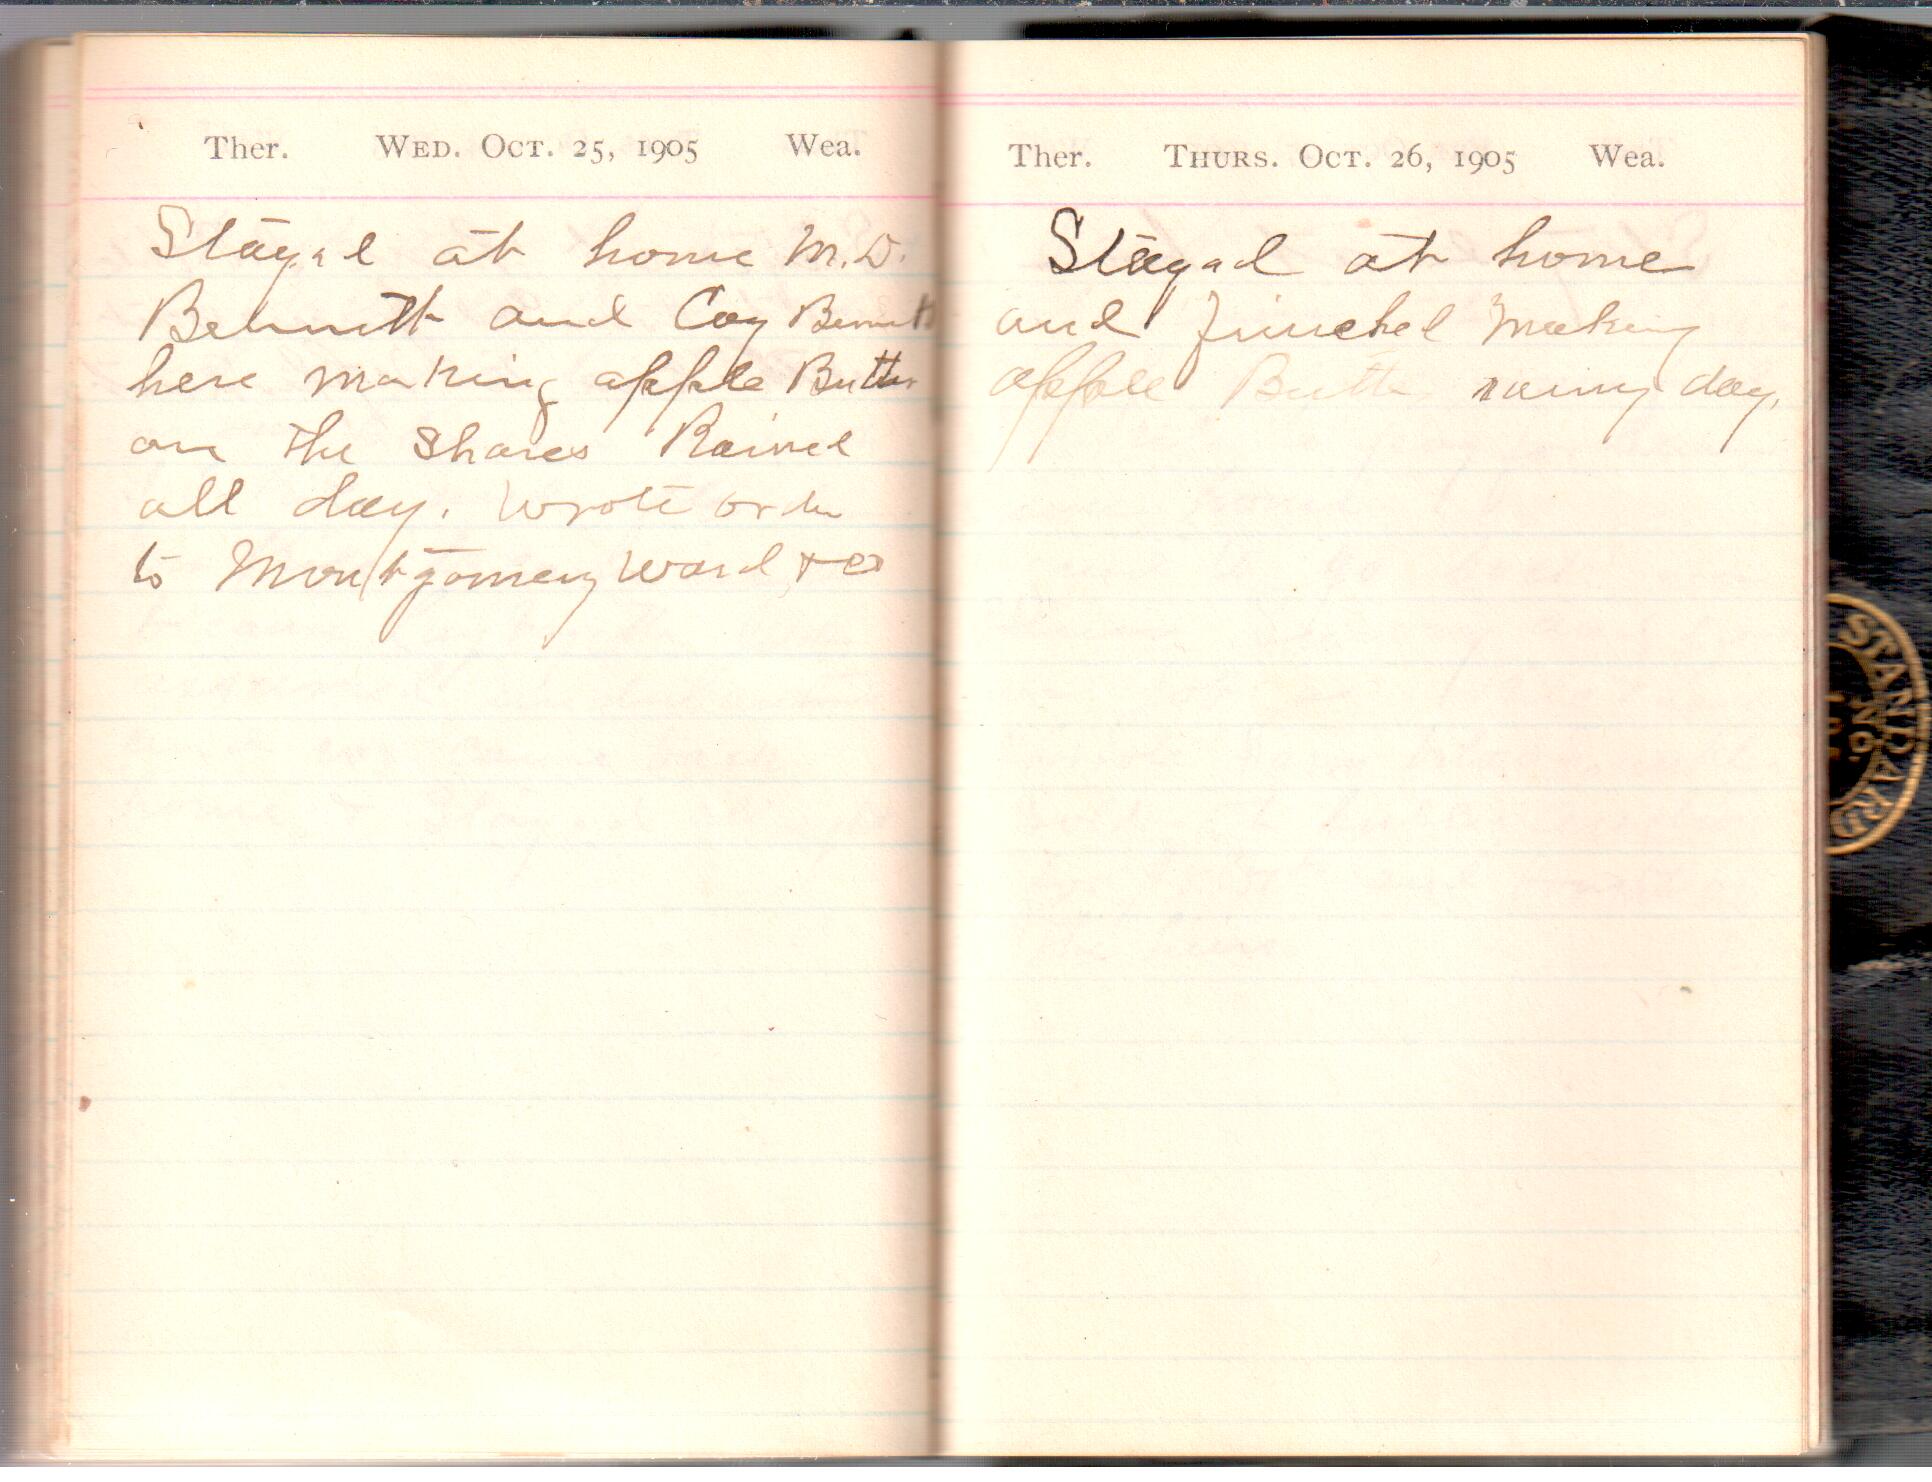 Ther. WED. OCT. 25, 1905 Wea.
Stayed at home M.D.
Bennett and Coy Bennett
here making apple Butter
on the shares Rained
all day. Wrote order
to Montgomery Ward & Co
Ther. THURS. OCT. 26, 1905 Wea.
Stayed at home
and finished making
apple Butter rainy day.
STANDARD
NO.